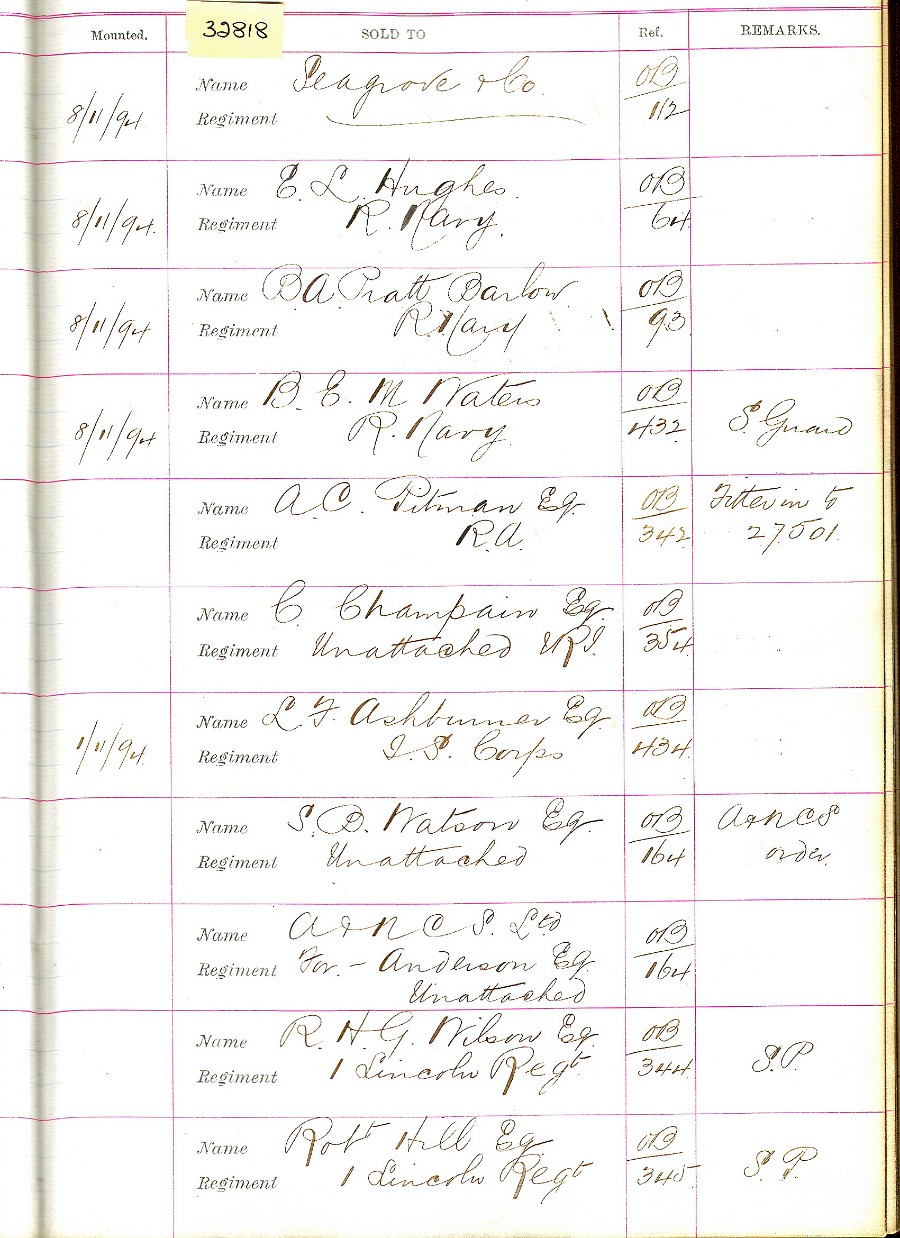 32818
Mounted. SOLD TO Ref. REMARKS.
Name Seagrove & Co. OB
8/11/94 Regiment 112
Name E. L. Hughes. OB
8/11/94. Regiment R. Navy. 64
Name B A Pratt Barlow OB
8/11/94 Regiment R Navy 93
Name B. E. M Waters OB
8/11/94 Regiment R. Navy 432 S. Guard
Name A. C. Pitman Eq. OB Fitter in to
Regiment R.A. 342 27501.
Name C. Champain Eq. OB
Regiment Unattached 354
Name L. F. Ashburner Eq. OB
1/11/94. Regiment I. S. Corps 434
Name S. D. Watson Eq. OB A & N C S
Regiment Unattached 164 order.
Name A & N C S. Ltd OB
Regiment For. - Anderson Eq. 164
Unattached
Name R. H. G. Wilson Eq. OB
Regiment 1 Lincoln Regt. 344 S.P.
Name Robt Hill Eq OB
Regiment 1 Lincoln Regt 345 S. P.